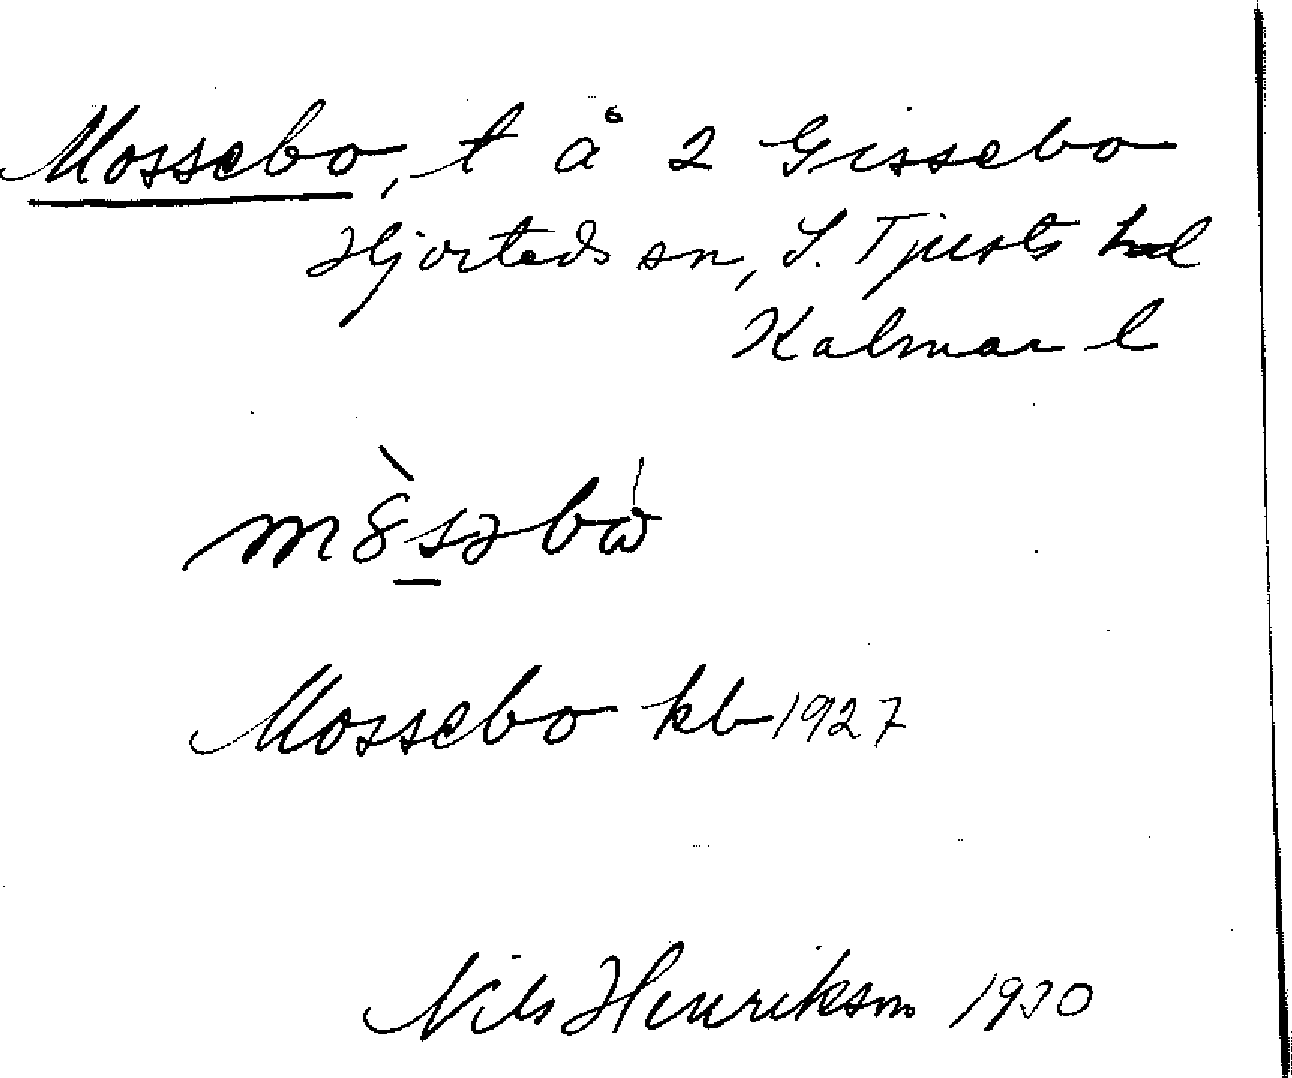 Mossebo, t å 2 Gissebo
Hjorteds sn, S. Tjusts hd
Kalmar l
Mossebo kb 1927
Nils Henrikson 1930